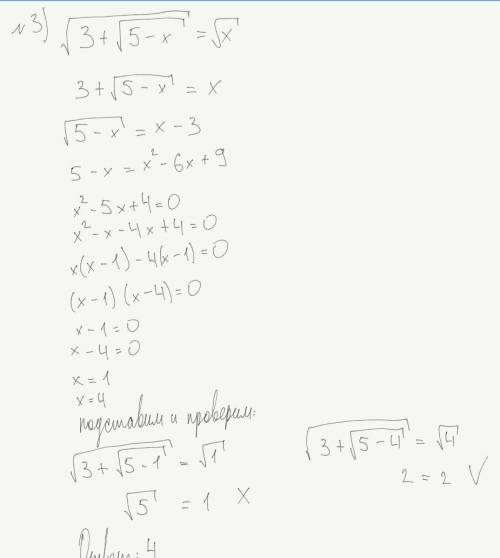 №3) √(3 + √(5 - x)) = √x
3 + √(5 - x) = x
√(5 - x) = x - 3
5 - x = x² - 6x + 9
x² - 5x + 4 = 0
x² - x - 4x + 4 = 0
x(x - 1) - 4(x - 1) = 0
(x - 1) (x - 4) = 0
x - 1 = 0
x - 4 = 0
x = 1
x = 4
подставим и проверим:
√(3 + √(5 - 1)) = √1
√5 = 1 X
√(3 + √(5 - 4)) = √4
2 = 2 V
Ответ: 4